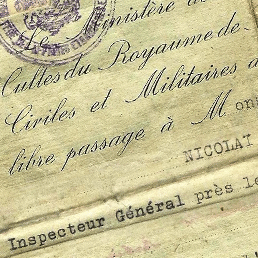 Le Ministère de
Cultes du Royaume de
Civiles et Militaires d
libre passage à Mon
NICOLAI
Inspecteur Général près le